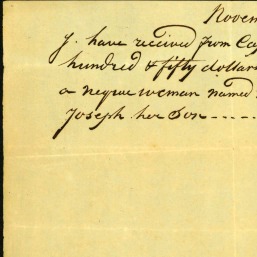 Novem
J. have received from Cap
hundred & fifty dollars
a negroe woman named
Joseph her Son -----